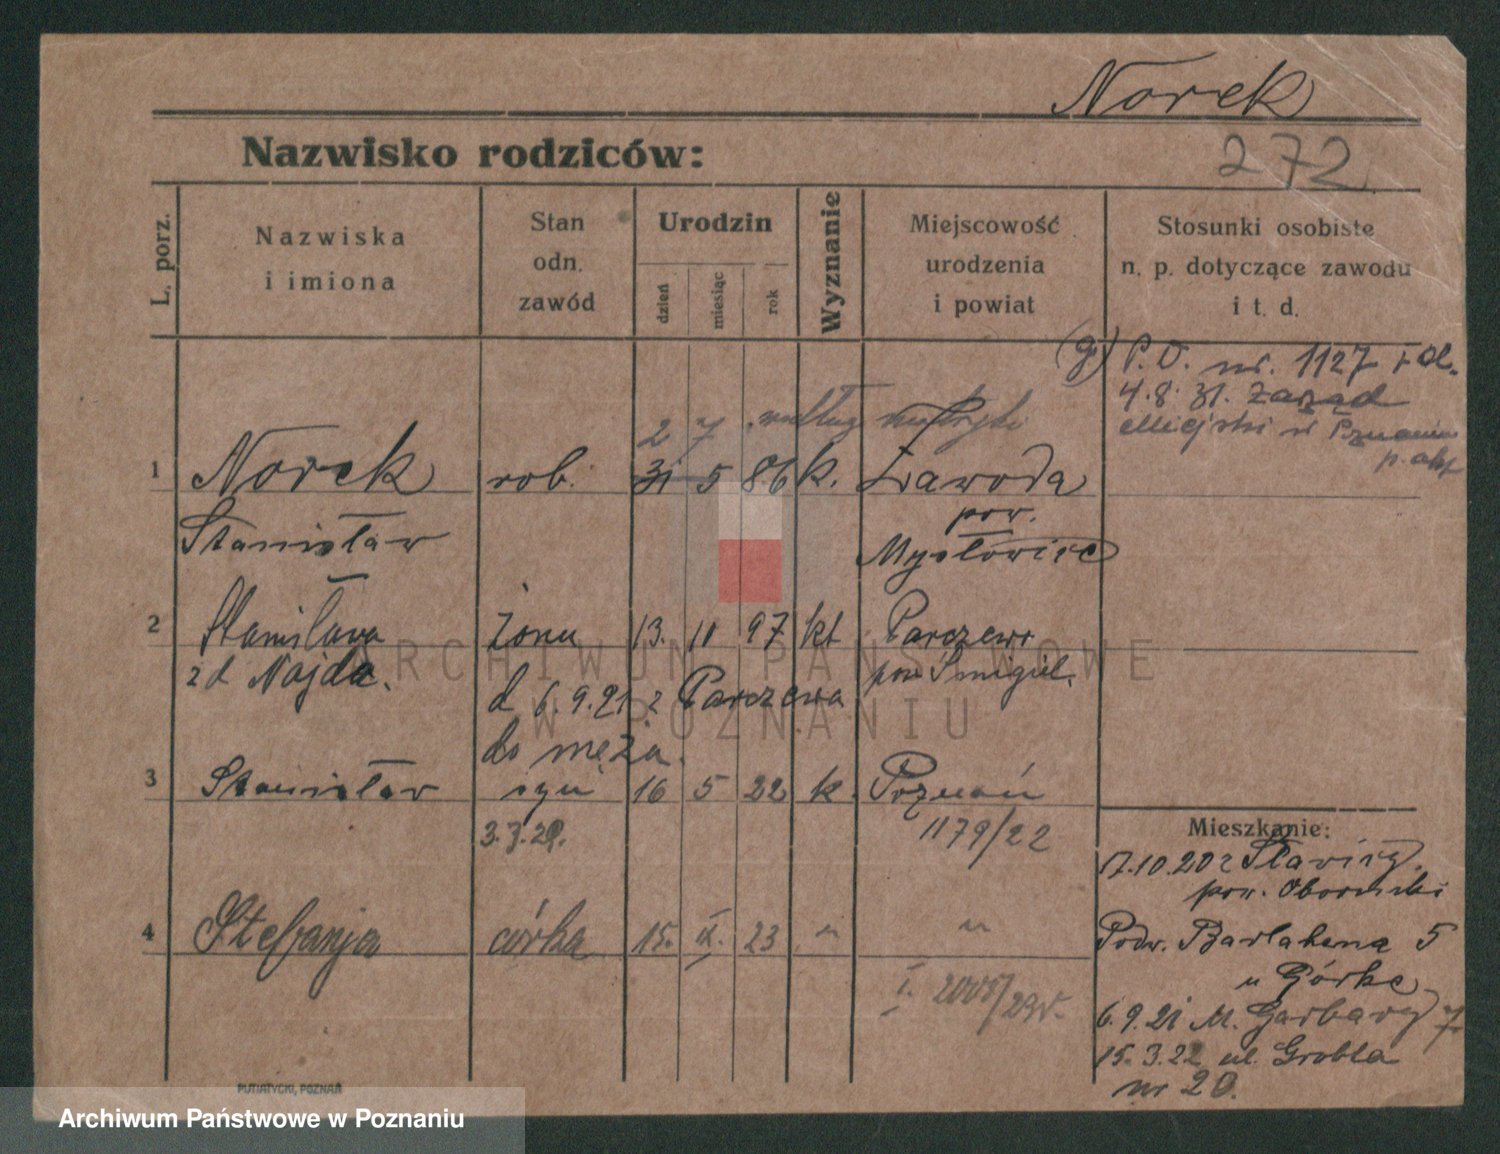 Norek
272
Nazwisko rodziców:
L. porz.
Nazwiska
i imiona
Stan
odn.
zawód
Urodzin
dzień
miesiąc
rok
Wyznanie
Miejscowość
urodzenia
i powiat
Stosunki osobiste
n. p. dotyczące zawodu
i t. d.
(g) P.O. nr. 1127
4.8.31. Zarząd
Miejski w Poznaniu
p. akt
2 7 według metryki
1 Norek rob. 31 5 86 k. Zawoda
Stanisław
pow.
Mysłowice
2 Stanisława żona 13. 11 97 kt Parczewo
zd Najda. pow Śmigiel.
d 6.9.21 z Parczewa
do męża.
3 Stanisław syn 16 5 22 k Poznań
3.3.29. 1179/22
4 Stefanja córka 15. IX. 23 " "
I.
Mieszkanie:
17.10.20 z
pow. Obornicki
Podw. Barlebena 5
u Górke
6.9.21 M. Garbary 7
15.3.22 ul. Grobla
nr 20.
PUTIATYCKI, POZNAŃ
ARCHIWUM PAŃSTWOWE
W POZNANIU
Archiwum Państwowe w Poznaniu